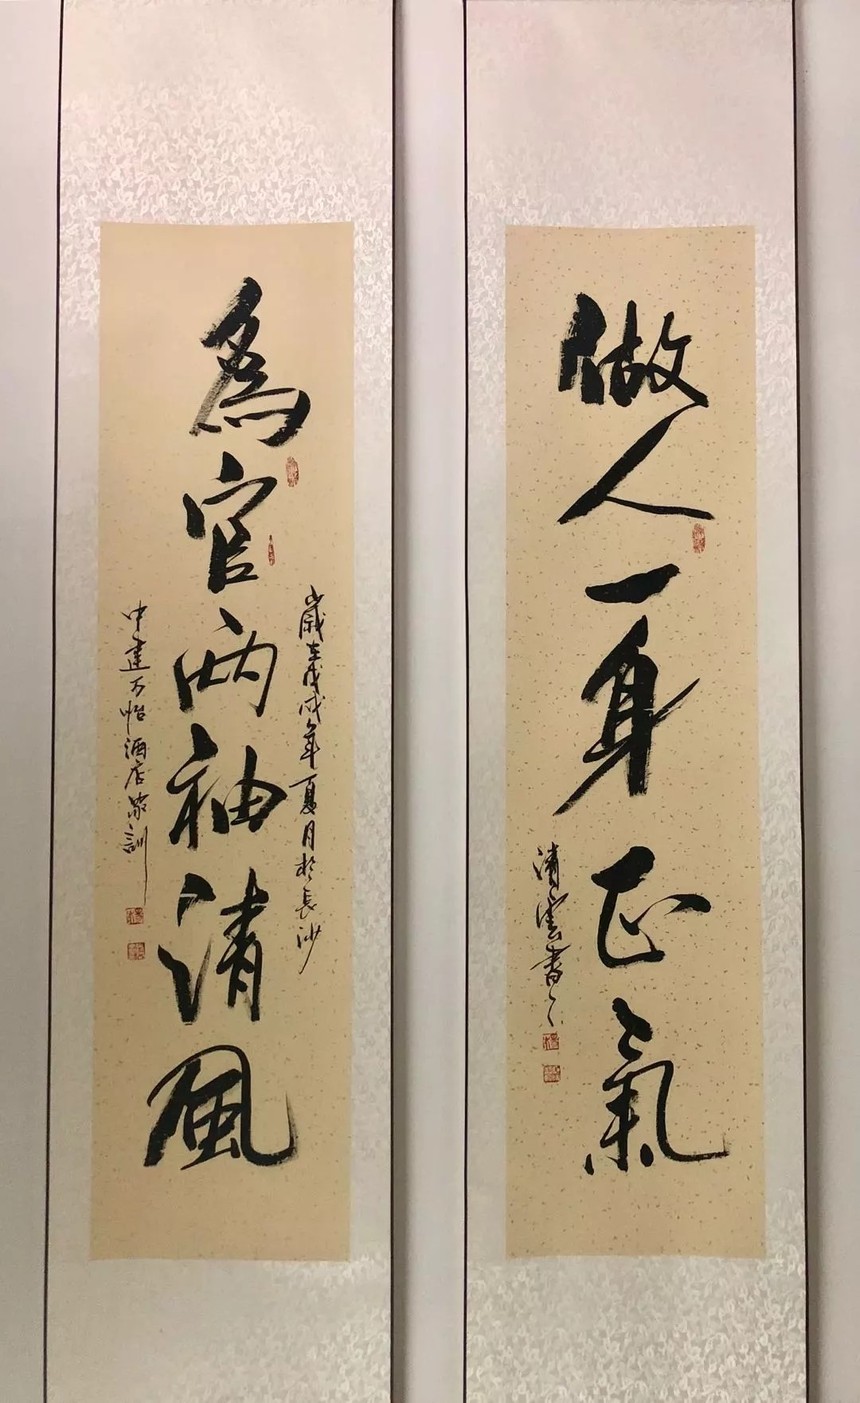 做人一身正氣
清雲書
為官兩袖清風
歲在戊戌年夏月於長沙
中建万怡酒店家訓